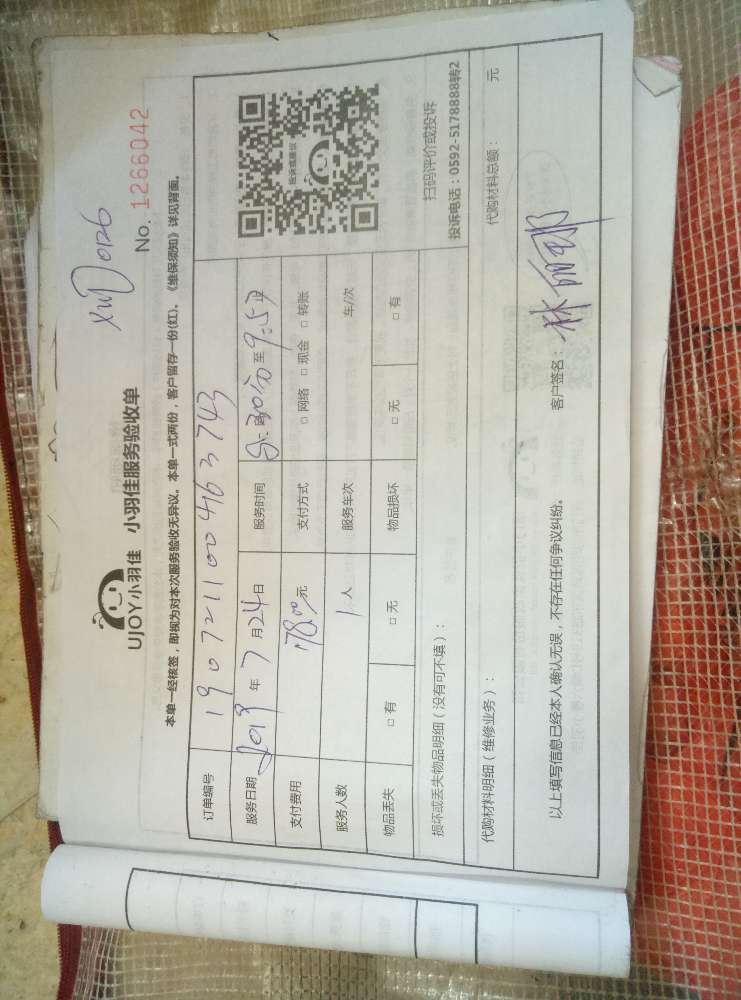 XWD0126
UJOY小羽佳 小羽佳服务验收单
No. 1266042
本单一经核签，即视为对本次服务验收无异议。本单一式两份，客户留存一份(红)。《维保须知》详见背面。
订单编号 190721100463743
服务日期 2019 年 7 月 24 日 服务时间 8:30分 至 9:57
支付费用 78.00 元 支付方式 □ 网络 □ 现金 □ 转账
服务人数 1 人 服务车次 车/次
物品丢失 □ 有 □ 无 物品损坏 □ 无 □ 有
投诉或建议
扫码评价或投诉
投诉电话：0592-5178888转2
损坏或丢失物品明细（没有可不填）：
代购材料明细（维修业务）： 代购材料总额： 元
以上填写信息已经本人确认无误，不存在任何争议纠纷。 客户签名：林丽